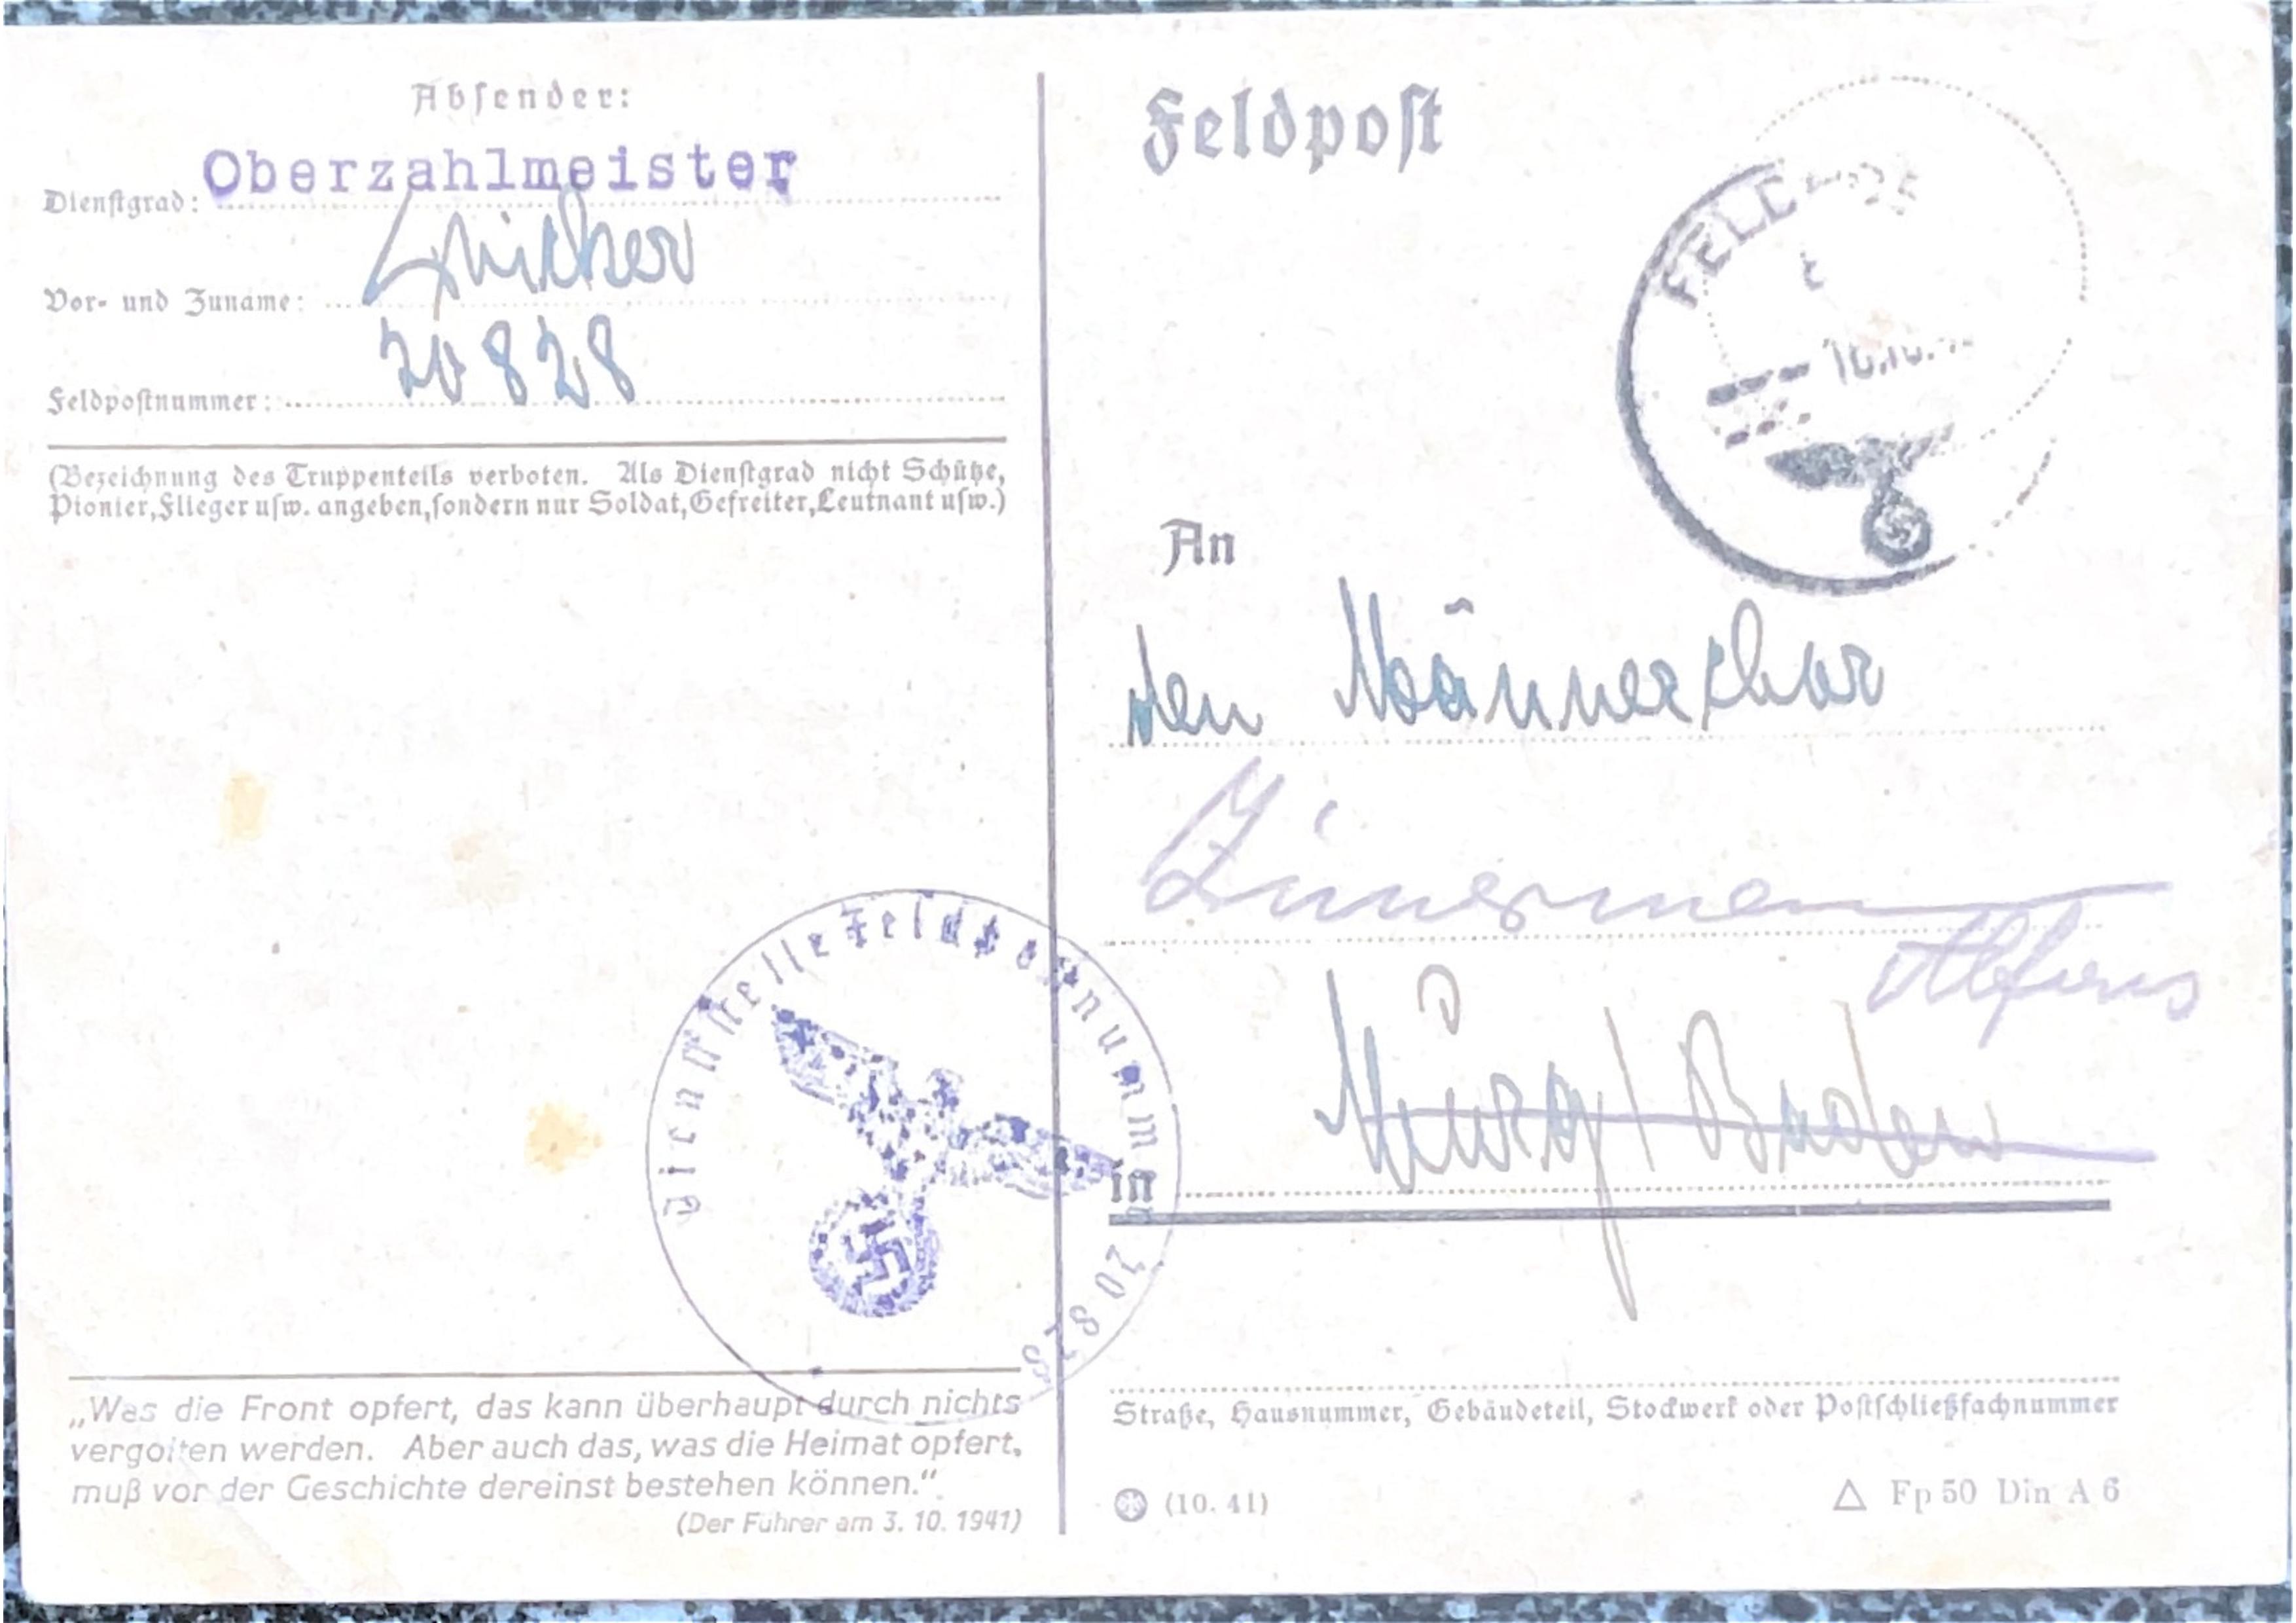 Absender:
Dienstgrad: Oberzahlmeister
Vor- und Zuname:
Feldpostnummer: 20828
(Bezeichnung des Truppenteils verboten. Als Dienstgrad nicht Schütze,
Pionier, Flieger usw. angeben, sondern nur Soldat, Gefreiter, Leutnant usw.)
Dienststelle Feldpostnummer 20828
„Was die Front opfert, das kann überhaupt durch nichts
vergolten werden. Aber auch das, was die Heimat opfert,
muß vor der Geschichte dereinst bestehen können.“
(Der Führer am 3. 10. 1941)
Feldpost
An
den Männerchor
in Baden
Straße, Hausnummer, Gebäudeteil, Stockwerk oder Postschließfachnummer
(10. 41)
Fp 50 Din A 6